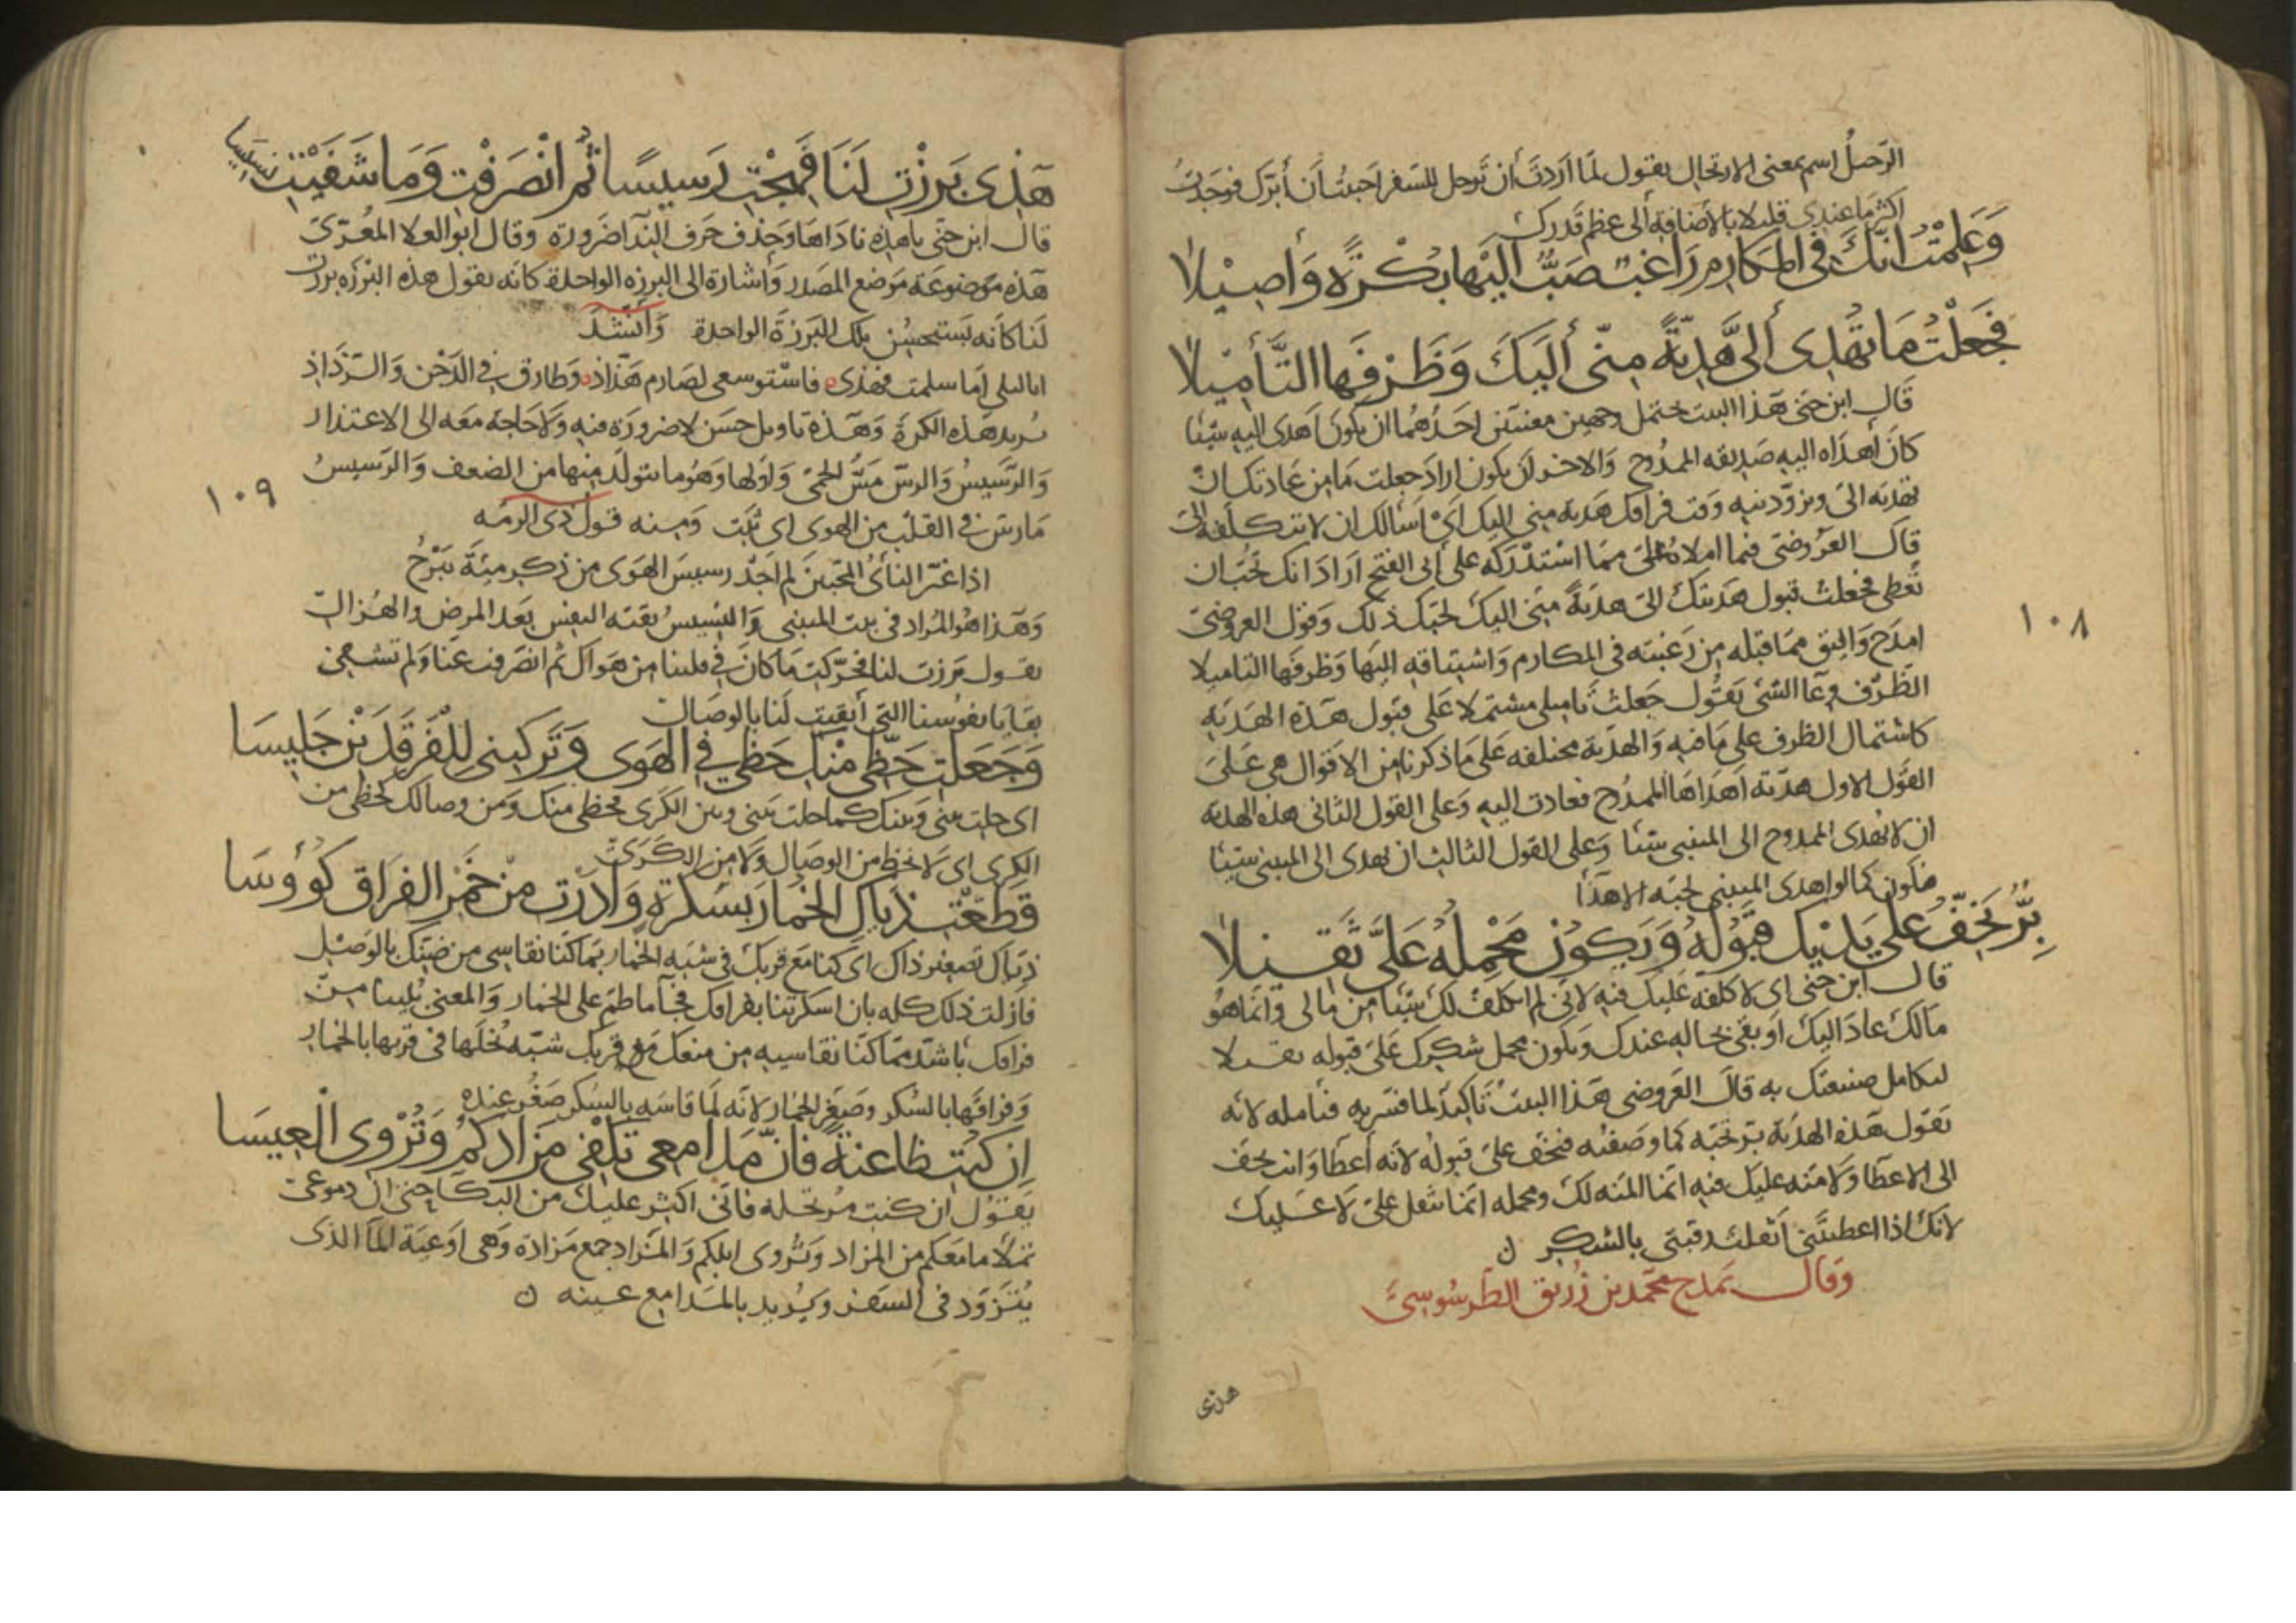 الرحيل اسم بمعنى الارتحال يقول لما اردت ان ترحل للسفر احببت أن أبرك فوجدت
اكثر ما عندي قليلا بالاضافة الى عظم قدرك
وَعَلِمْتُ انّكَ في المكارم راغبٌ صَبٌّ اليها بُكْرةً وَأصِيلا
فجعلْتُ مَا تُهْدِى إلىَّ هَدِيّةً منّى أليكَ وَظَرْفَها التّأمِيلا
قال ابن جنى هذا البيت يحتمل وجهين معنيين احدهما ان يكون اهدى اليه شيئا
كان أهداه اليه صديقه الممدوح والاخر ان يكون اراد جعلت ما من عادتك ان
تهديه الىّ وتزودنيه وقت فراقك هدية منى اليك اى اسالك ان لا تتكلفه لى
قال العروضى فيما املاه علىّ مما استدركه على أبى الفتح اراد انك تحب ان
تعطى فجعلت قبول هديتك الىّ هدية منى اليك لحبك ذلك وقول العروضى
امدح واليق مما قبله من رغبته فى المكارم واشتياقه اليها وظرفها التاميلا
الظرف وعاء الشئ يقول جعلت تاميلى مشتملا على قبول هذه الهدية
كاشتمال الظرف على ما فيه والهدية مختلفه على ما ذكرنا من الاقوال هى على
القول الاول هديّة اهداها الممدوح فعادت اليه وعلى القول الثانى هذه الهدية
ان لا يهدى الممدوح الى المتنبى شيئا وعلى القول الثالث ان يهدى الى المتنبى شيئا
فتكون كما لو اهدى المتنبى لحبه الاهدآ
بِرٌّ يَخِفُّ على يَديْك قبُولُهُ وَيَكونُ مَحْمِلُهُ عَلىَّ ثَقيلا
قال ابن جنى اى لا كلفة عليك فيه لانى لم اتكلف لك شيئا من مالى وانما هو
مالك عاد اليك او بقى بحاله عندك ويكون محمل شكرك علىّ قبوله ثقيلا
لتكامل صنيعتك به قال العروضى هذا البيت تاكيد لما فسر به فتامله لانه
يقول هذه الهدية بر تحبه كما وصفته فيخف علىّ قبوله لانه أعطا وانت تخف
الى الاعطا ولا منه عليك فيه انما المنه لك ومحمله انما يثقل علىّ لا عليك
لانك اذا اعطيتنى أثقلت رقبتى بالشكر ن
وقال يمدح محمد بن زريق الطرسوسىّ
هذى
١٠٨
هَذِى بَرَزْتِ لَنَا فَهِجْتِ رَسيسًا ثُم انْصَرَفْتِ وَمَا شَفَيْتِ نسيسا
قال ابن جنى يا هذه ناداها وحذف حرف الندآ ضرورة وقال ابو العلا المعرّىّ
هذه موضوعة موضع المصدر وأشارة الى البرزه الواحدة كانه يقول هذه البرزه برزت
لنا كانه يستحسن تلك البرزة الواحدة وأنشد
يا ابلى اما سلمت فهذى فاستوسقى لصارم هذاذ وطارق في الدجن والرذاذ
يريد هذه الكرة وهذة تاويل حسن لا ضرورة فيه ولا حاجة معه الى الاعتذار
والرّسيس والرسّ مسّ الحمى واولها وهو ما يتولد منها من الضعف والرسيس
مارس فى القلب من الهوى اى ثبت ومنه قول ذى الرمه
اذا غيّر النأى المحبين لم اجد رسيس الهوى من ذكر ميّة يبرح
وهذا هو المراد فى بيت المتنبى والنسيس بقية النفس بعد المرض والهزال
يقول برزت لنا فحرّكت ما كان فى قلبنا من هواك ثم انصرفت عنا ولم تشفى
بقايا نفوسنا التى أبقيت لنا بالوصال
وَجَعَلت حَظّى مِنْكِ حَظّي في الهَوَى وَتَركتِنى للفَرقَدَيْنِ جَليسَا
اى حلت بينى وبينك كما حلت بينى وبين الكرى فحظى منك ومن وصالك كحظى من
الكرى اى لا حظ من الوصال ولا من الكرى
قطّعْتِ ذيّاكِ الخُمارَ بسَكرةٍ وَادَرْتِ مِنْ خَمرِ الفرَاق كُؤوسَا
ذيّاك تصغير ذاك اى كنا مع قربك فى شبه الخمار بما كنا نقاسى من ضنك بالوصل
فازلت ذلك كله بان اسكرتنا بفراقك فجآ ما طم على الخمار والمعنى بُلينا من
فراقك باشد مما كنا نقاسيه من منعك مع قربك شبّه بُخلها فى قربها بالخمار
وفراقها بالسكر وصغّر الخمار لانه لما قاسه بالسكر صغر عنده
اِن كُنتِ ظاعنةً فانّ مَدامعى تكْفِي مَزَادَكمُ وَتُرْوى الْعِيسَا
يقول ان كنت مرتحلة فانى اكثر عليك من البكا حتى ان دموعى
تملا ما معكم من المزاد وتروى ابلكم والمزاد جمع مزاده وهى اوعية المآ الذى
يتزود فى السفر ويريد بالمدامع عينه ن
١٠٩